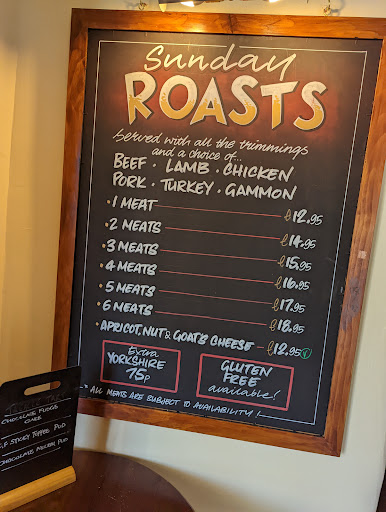 Sunday
ROASTS
Served with all the trimmings
and a choice of...
BEEF · LAMB · CHICKEN
PORK · TURKEY · GAMMON
· 1 MEAT £12.95
· 2 MEATS £14.95
· 3 MEATS £15.95
· 4 MEATS £16.95
· 5 MEATS £17.95
· 6 MEATS £18.95
· APRICOT, NUT & GOATS CHEESE £12.95 V
Extra
YORKSHIRE
75P
GLUTEN
FREE
available!
· ALL MEATS ARE SUBJECT TO AVAILABILITY!
CHOCOLATE FUDGE
CAKE
STICKY TOFFEE PUD
CHOCOLATE MELTEN PUD